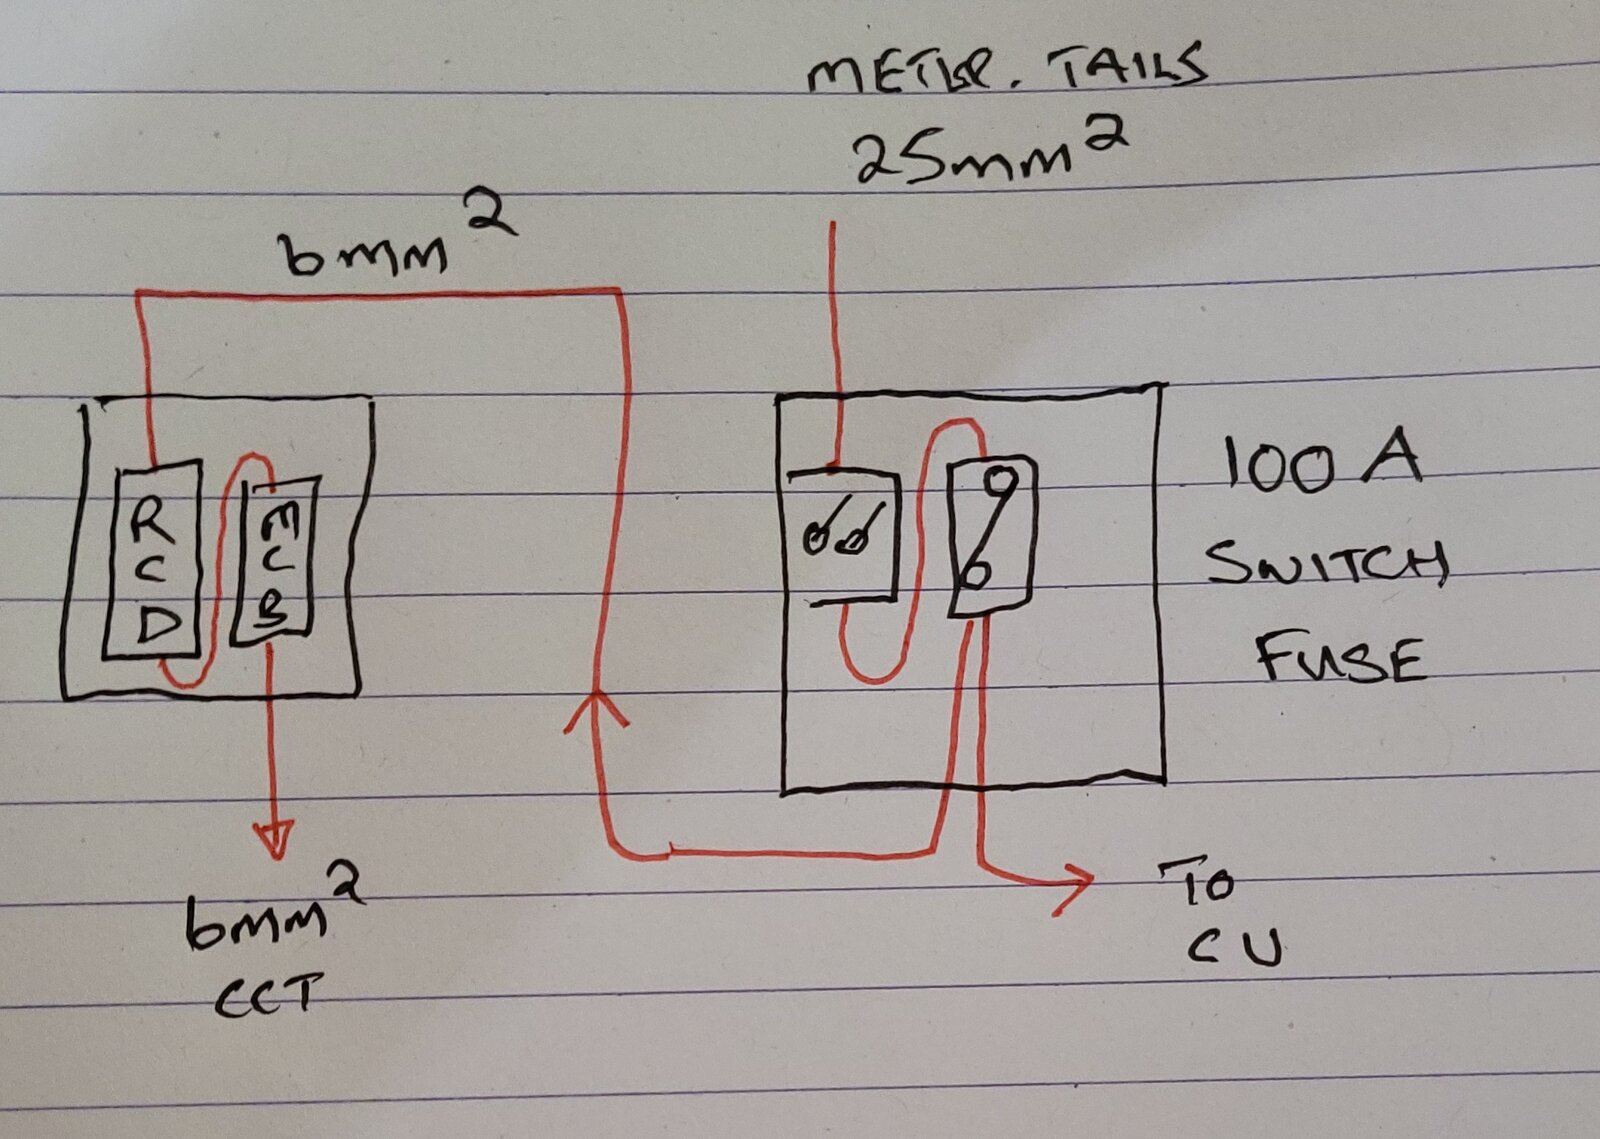 METER. TAILS
25mm²
6mm²
RCD
MCB
100 A
SWITCH
FUSE
TO
CU
6mm²
CCT